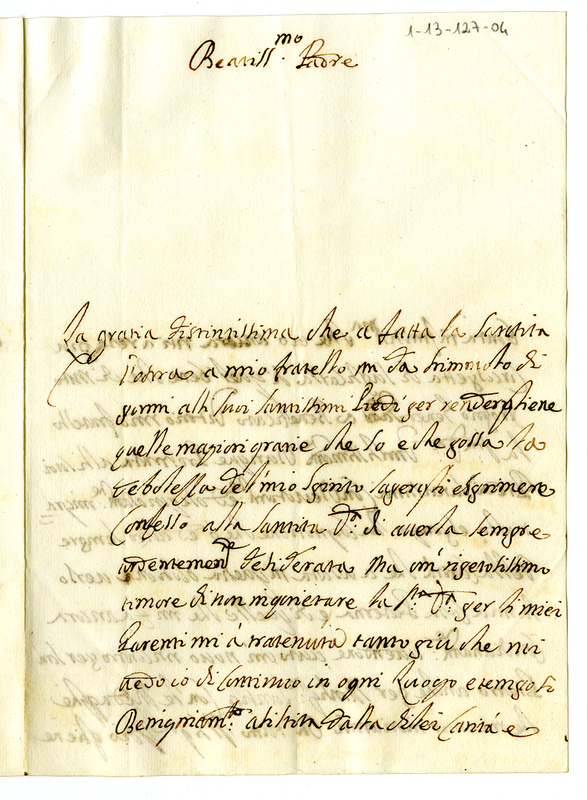 1-13-127-04
Beatiss.mo Padre
La gratia distintissima che a fatta la Santita
Vostra a mio fratello mi da stimmolo di
pormi alli suoi santissimi Piedi per rendergliene
quelle magiori gratie che so e che possa la
debolessa del mio spirito sapergli esprimere
Confesso alla Santita V.a di averla sempre
ardentemente desiderata ma un rispetosissimo
timore di non inquietare la S.ta V.a per li miei
Parenti mi à tratenuta tanto più che mi
vedo io di continuo in ogni Luogo e tempo si
Benigniam.te assistita dalla di lei Carità e